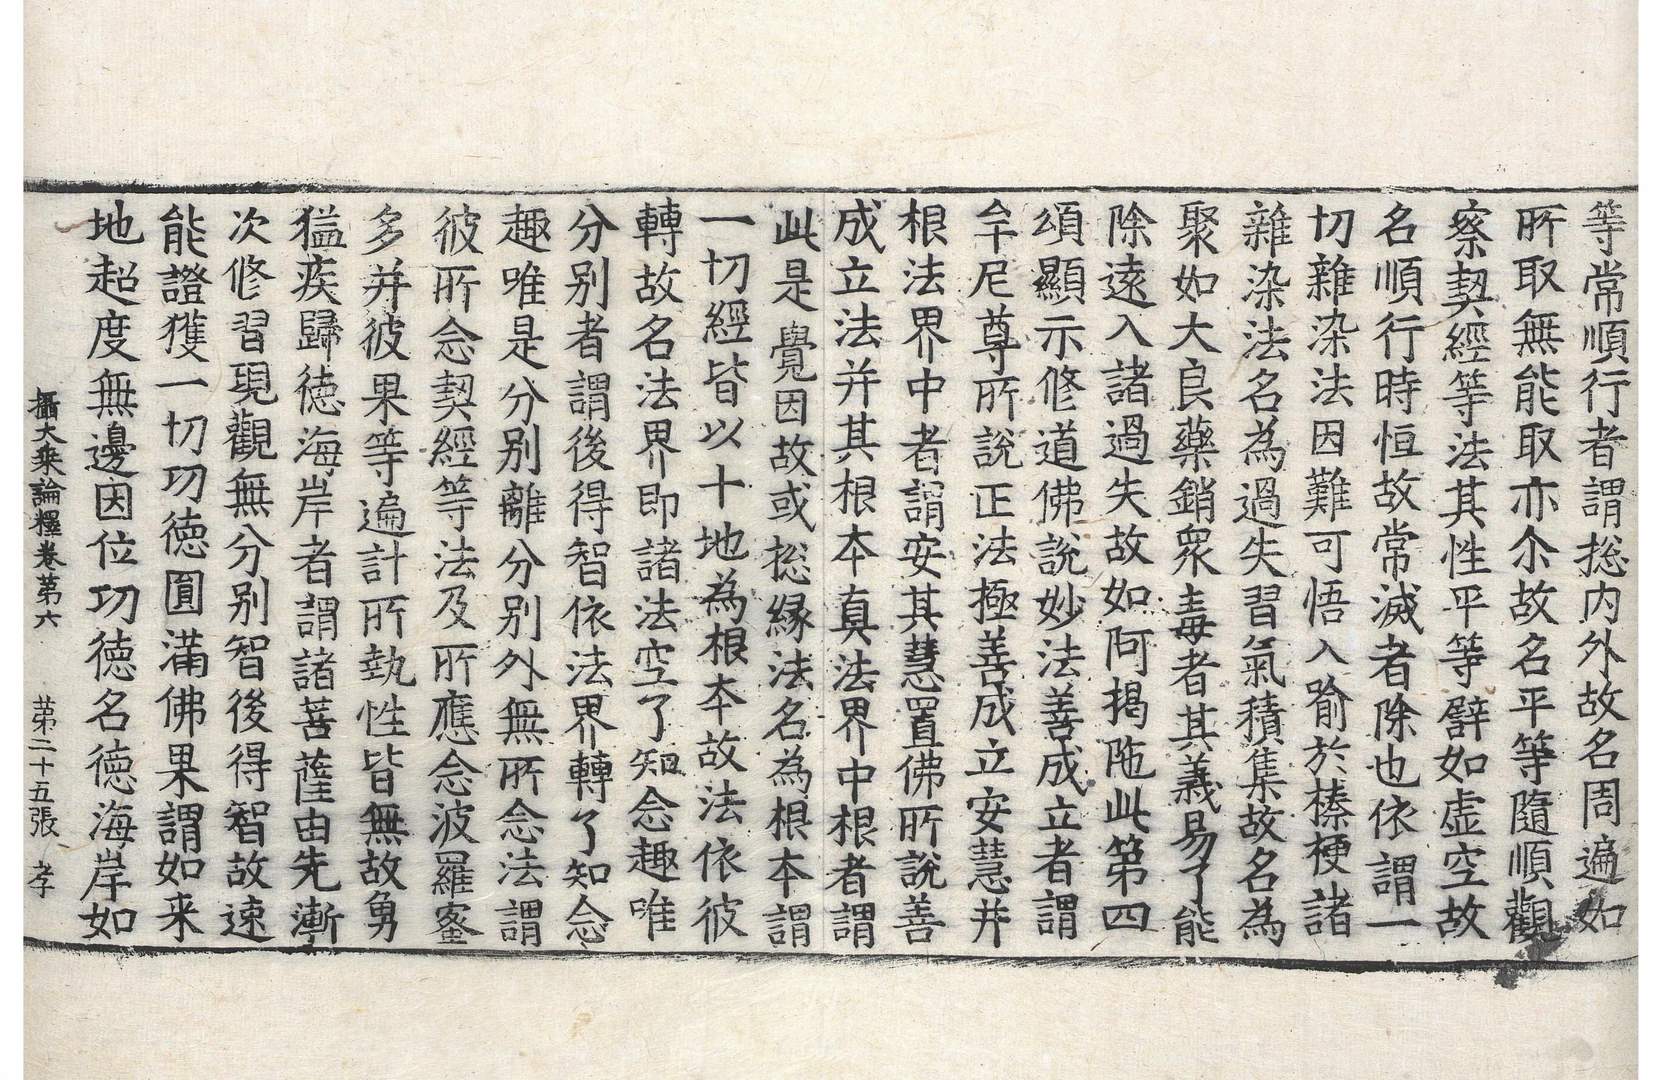 等常順行者謂捴内外故名周遍如
所取無能取亦尒故名平等隨順觀
察契經等法其性平等譬如虚空故
名順行時恒故常滅者除也依謂一
切雜染法因難可悟入喻於榛梗諸
雜染法名為過失習氣積集故名為
聚如大良藥銷衆毒者其義易了能
除遠入諸過失故如阿揭陁此第四
頌顯示修道佛說妙法善成立者謂
牟尼尊所說正法極善成立安慧并
根法界中者謂安其慧置佛所說善
成立法并其根本真法界中根者謂
此是覺因故或捴緣法名為根本謂
一切經皆以十地為根本故法依彼
轉故名法界即諸法空了知念趣唯
分別者謂後得智依法界轉了知念
趣唯是分別離分別外無所念法謂
彼所念契經等法及所應念波羅蜜
多并彼果等遍計所執性皆無故勇
猛疾歸德海岸者謂諸菩薩由先漸
次修習現觀無分別智後得智故速
能證獲一切功德圓滿佛果謂如来
地超度無邊因位功德名德海岸如
攝大乘論釋卷第六 苐二十五張 孝